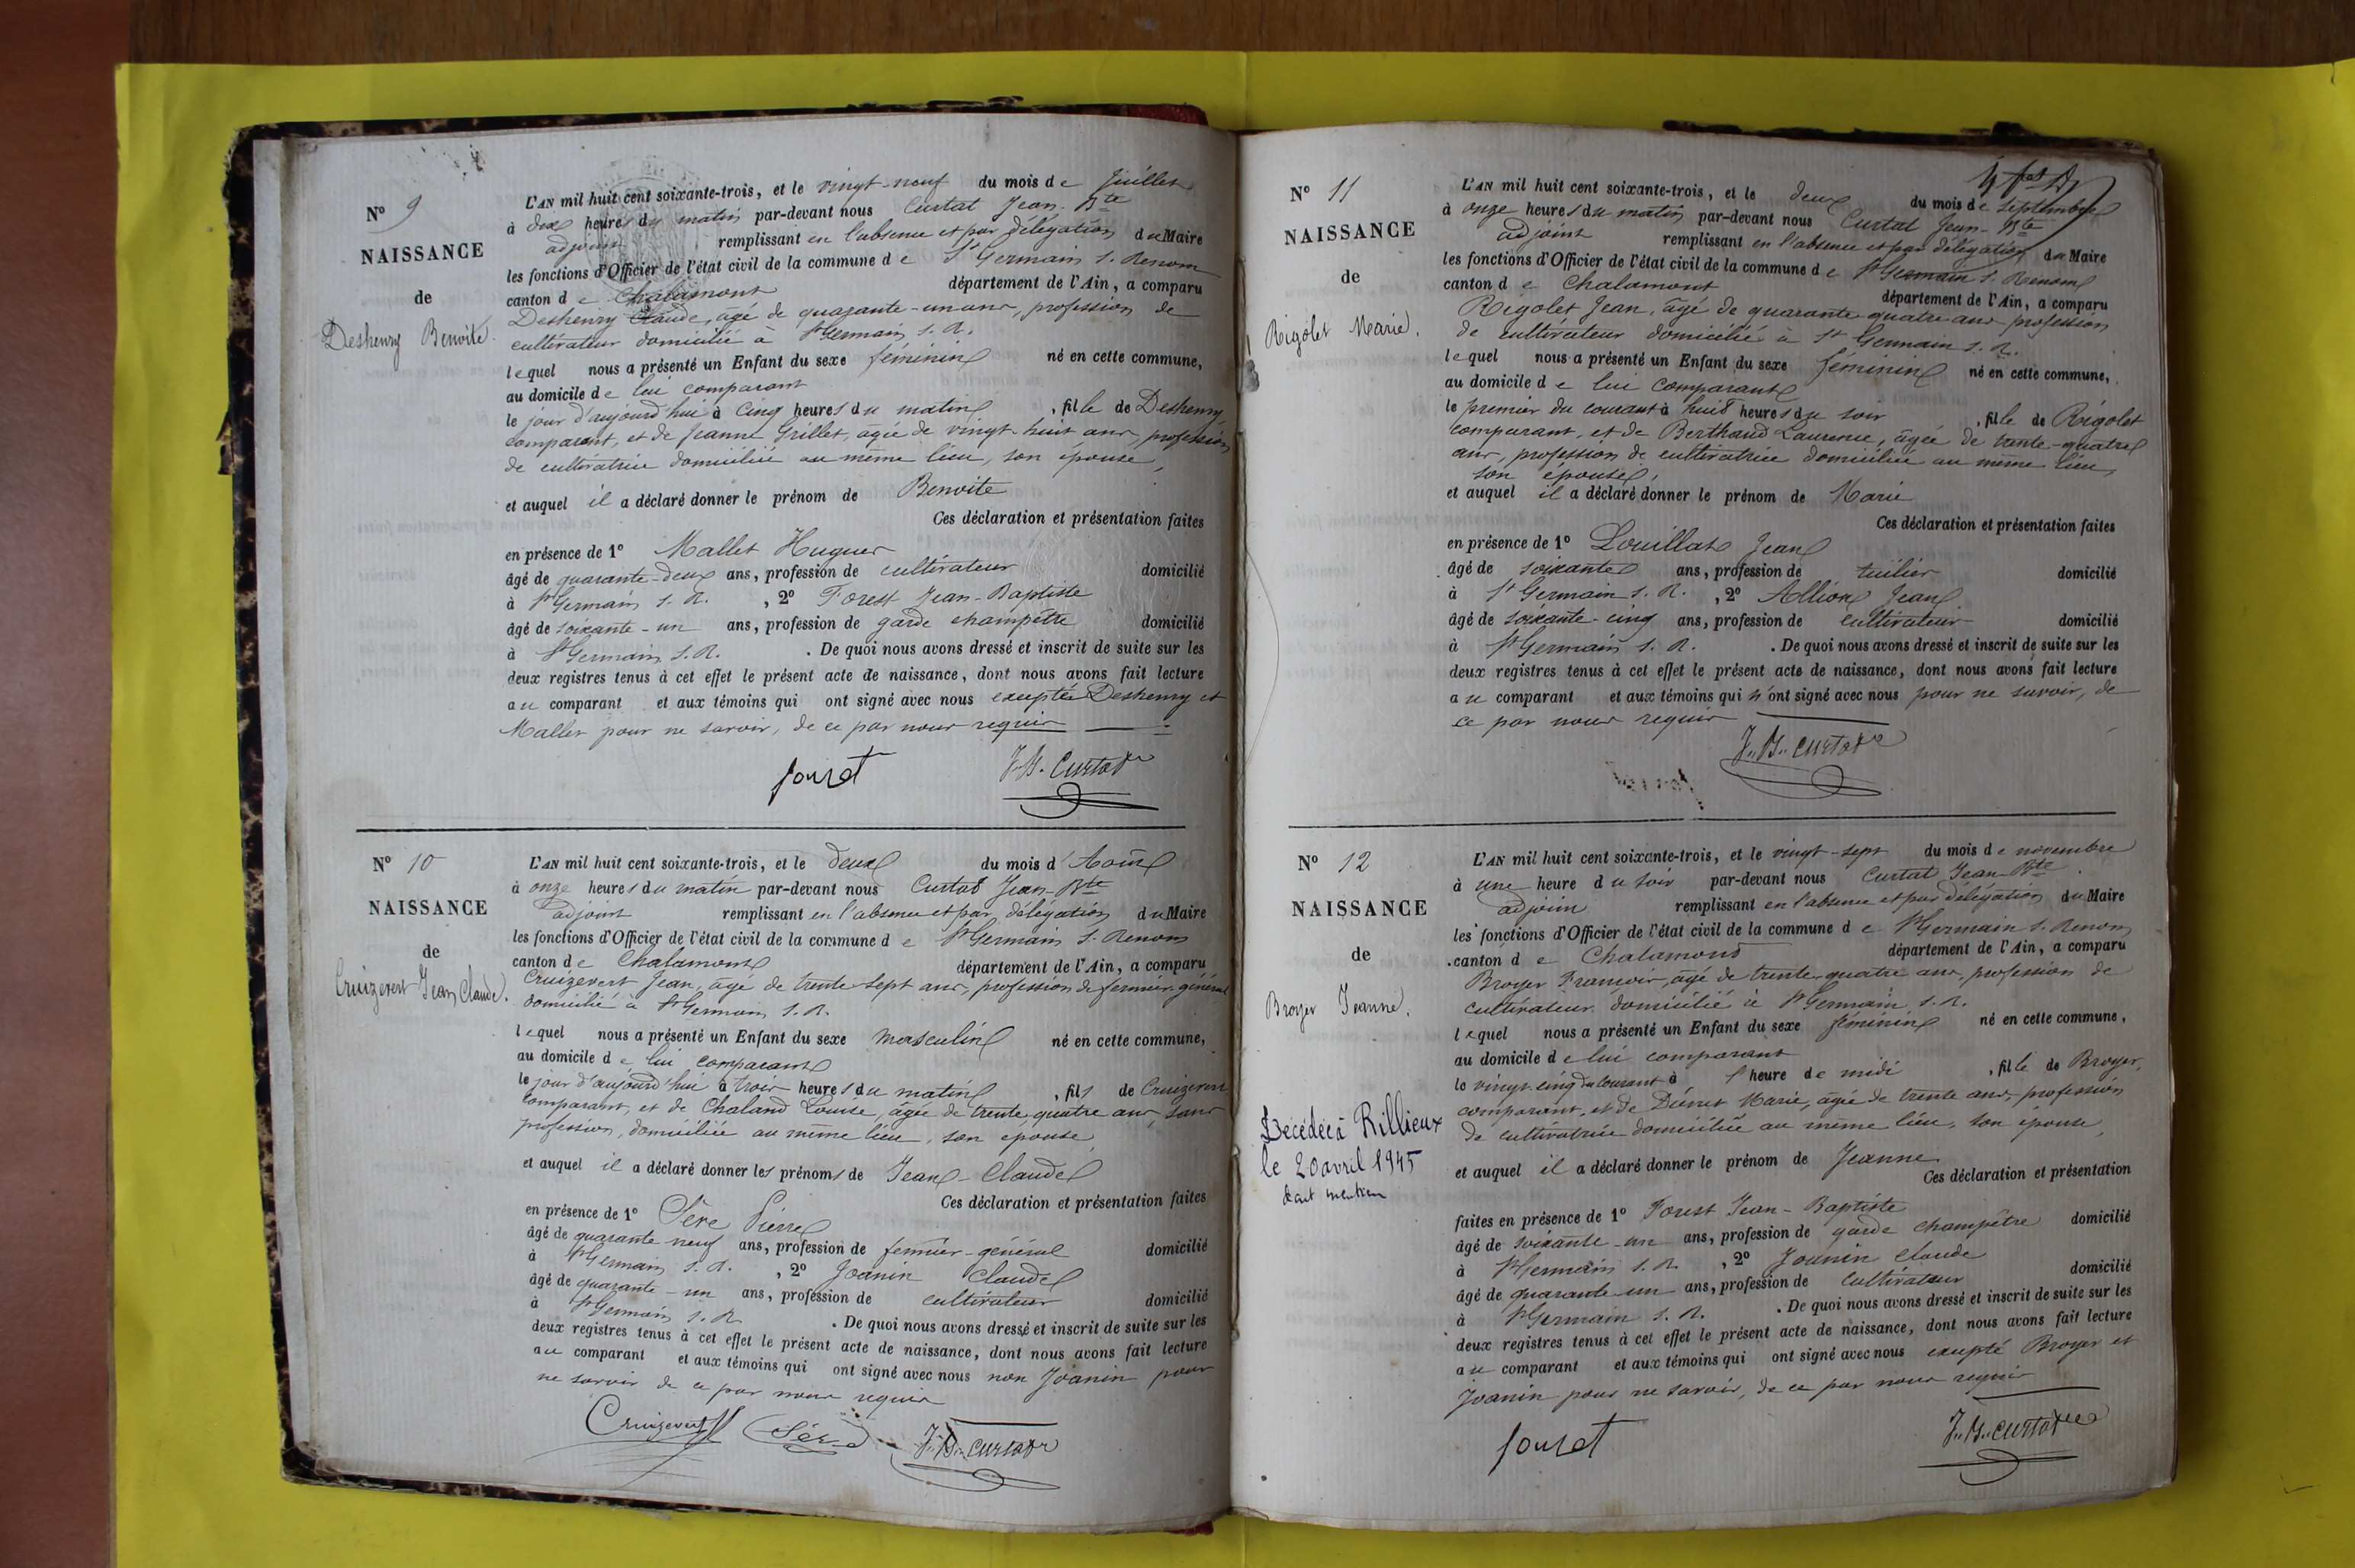 N° 9
NAISSANCE
de
Deshenry Benoite.
L'AN mil huit cent soixante-trois, et le vingt-neuf du mois de Juillet
à dix heures du matin par-devant nous Curtat Jean-Bte
adjoint remplissant en l'absence et par délégation du Maire
les fonctions d'Officier de l'état civil de la commune de St Germain s. Renom
canton de Chalamont département de l'Ain, a comparu
Deshenry Claude, âgé de quarante-un ans, profession de
cultivateur domicilié à St Germain s. R.
lequel nous a présenté un Enfant du sexe féminin né en cette commune,
au domicile de lui comparant
le jour d'aujourd'hui à cinq heures du matin, fille de Deshenry
comparant, et de Jeanne Grillet, âgée de vingt-huit ans, profession
de cultivatrice domiciliée au même lieu, son épouse,
et auquel il a déclaré donner le prénom de Benoite
Ces déclaration et présentation faites
en présence de 1° Mallet Hugues
âgé de quarante-deux ans, profession de cultivateur domicilié
à St Germain s. R. , 2° Forest Jean-Baptiste
âgé de soixante-un ans, profession de garde champêtre domicilié
à St Germain s. R. . De quoi nous avons dressé et inscrit de suite sur les
deux registres tenus à cet effet le présent acte de naissance, dont nous avons fait lecture
au comparant et aux témoins qui ont signé avec nous excepté Deshenry et
Mallet pour ne savoir, de ce par nous requis
foret J.-B. Curtat
N° 10
NAISSANCE
de
Cruizevert Jean Claude.
L'AN mil huit cent soixante-trois, et le deux du mois d'Août
à onze heures du matin par-devant nous Curtat Jean-Bte
adjoint remplissant en l'absence et par délégation du Maire
les fonctions d'Officier de l'état civil de la commune de St Germain s. Renom
canton de Chalamont département de l'Ain, a comparu
Cruizevert Jean, âgé de trente sept ans, profession de fermier-général
domicilié à St Germain s. R.
lequel nous a présenté un Enfant du sexe masculin né en cette commune,
au domicile de lui comparant
le jour d'aujourd'hui à trois heures du matin, fils de Cruizevert
comparant, et de Chaland Louise, âgée de trente quatre ans, sans
profession, domiciliée au même lieu, son épouse,
et auquel il a déclaré donner les prénoms de Jean-Claude
Ces déclaration et présentation faites
en présence de 1° Sère Pierre
âgé de quarante neuf ans, profession de fermier-général domicilié
à St Germain s. R. , 2° Joanin Claude
âgé de quarante-un ans, profession de cultivateur domicilié
à St Germain s. R. . De quoi nous avons dressé et inscrit de suite sur les
deux registres tenus à cet effet le présent acte de naissance, dont nous avons fait lecture
au comparant et aux témoins qui ont signé avec nous non Joanin pour
ne savoir de ce par nous requis
Cruizevert Sère J.-B. Curtat
N° 11
NAISSANCE
de
Rigolet Marie.
L'AN mil huit cent soixante-trois, et le deux du mois de septembre
à onze heures du matin par-devant nous Curtat Jean-Bte
adjoint remplissant en l'absence et par délégation du Maire
les fonctions d'Officier de l'état civil de la commune de St Germain s. Renom
canton de Chalamont département de l'Ain, a comparu
Rigolet Jean, âgé de quarante quatre ans profession
de cultivateur domicilié à St Germain s. R.
lequel nous a présenté un Enfant du sexe féminin né en cette commune,
au domicile de lui comparant
le premier du courant à huit heures du soir, fille de Rigolet
comparant, et de Berthaud Laurence, âgée de trente-quatre
ans, profession de cultivatrice domiciliée au même lieu,
son épouse,
et auquel il a déclaré donner le prénom de Marie
Ces déclaration et présentation faites
en présence de 1° Louillat Jean
âgé de soixante ans, profession de tuilier domicilié
à St Germain s. R. , 2° Allion Jean
âgé de soixante-cinq ans, profession de cultivateur domicilié
à St Germain s. R. . De quoi nous avons dressé et inscrit de suite sur les
deux registres tenus à cet effet le présent acte de naissance, dont nous avons fait lecture
au comparant et aux témoins qui n'ont signé avec nous pour ne savoir, de
ce par nous requis
J.-B. Curtat
N° 12
NAISSANCE
de
Broyer Jeanne.
Décédée à Rillieux
le 20 avril 1945
dont mention
L'AN mil huit cent soixante-trois, et le vingt-sept du mois de novembre
à une heure du soir par-devant nous Curtat Jean-Bte
adjoint remplissant en l'absence et par délégation du Maire
les fonctions d'Officier de l'état civil de la commune de St Germain s. Renom
canton de Chalamont département de l'Ain, a comparu
Broyer François, âgé de trente-quatre ans, profession de
cultivateur domicilié à St Germain s. R.
lequel nous a présenté un Enfant du sexe féminin né en cette commune,
au domicile de lui comparant
le vingt-cinq du courant à l'heure de midi, fille de Broyer,
comparant, et de Marie, âgée de trente ans, profession
de cultivatrice domiciliée au même lieu, son épouse,
et auquel il a déclaré donner le prénom de Jeanne
Ces déclaration et présentation
faites en présence de 1° Forest Jean-Baptiste
âgé de soixante-un ans, profession de garde champêtre domicilié
à St Germain s. R. , 2° Joanin Claude
âgé de quarante-un ans, profession de cultivateur domicilié
à St Germain s. R. . De quoi nous avons dressé et inscrit de suite sur les
deux registres tenus à cet effet le présent acte de naissance, dont nous avons fait lecture
au comparant et aux témoins qui ont signé avec nous excepté Broyer et
Joanin pour ne savoir, de ce par nous requis
foret J.-B. Curtat